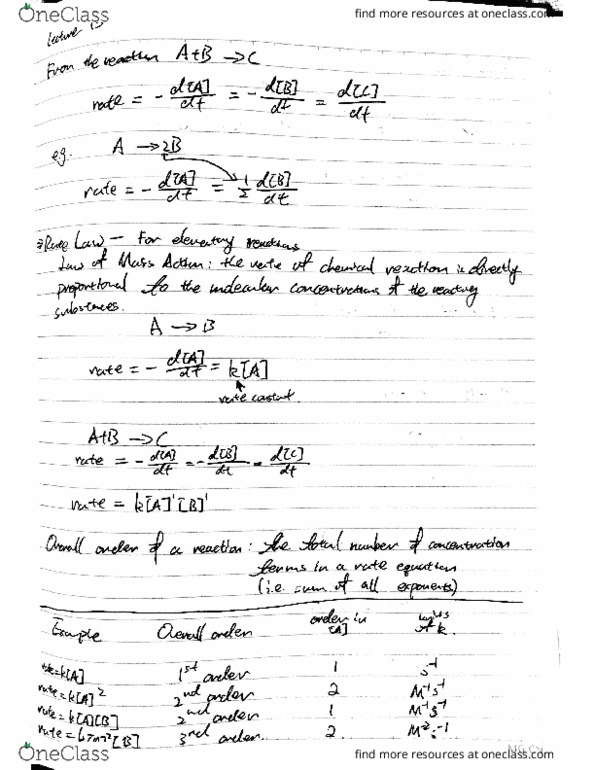 OneClass
find more resources at oneclass.com
Lecture
From the reaction A+B → C
rate = - d[A]/dt = - d[B]/dt = d[C]/dt
eg. A → 2B
rate = - d[A]/dt = 1/2 d[B]/dt
Rate Law - For elementary reactions
Law of Mass Action: the rate of chemical reaction is directly
proportional to the molecular concentrations of the reacting
substances.
A → B
rate = - d[A]/dt = k[A]
rate constant
A+B → C
rate = - d[A]/dt = - d[B]/dt = d[C]/dt
rate = k[A]¹[B]¹
Overall order of a reaction: the total number of concentration
terms in a rate equation
(i.e. sum of all exponents)
Example Overall order order in [A] units of k
rate=k[A] 1st order 1 s⁻¹
rate=k[A]² 2nd order 2 M⁻¹s⁻¹
rate=k[A][B] 2nd order 1 M⁻¹s⁻¹
rate= [B] 3rd order 2
OneClass
find more resources at oneclass.com